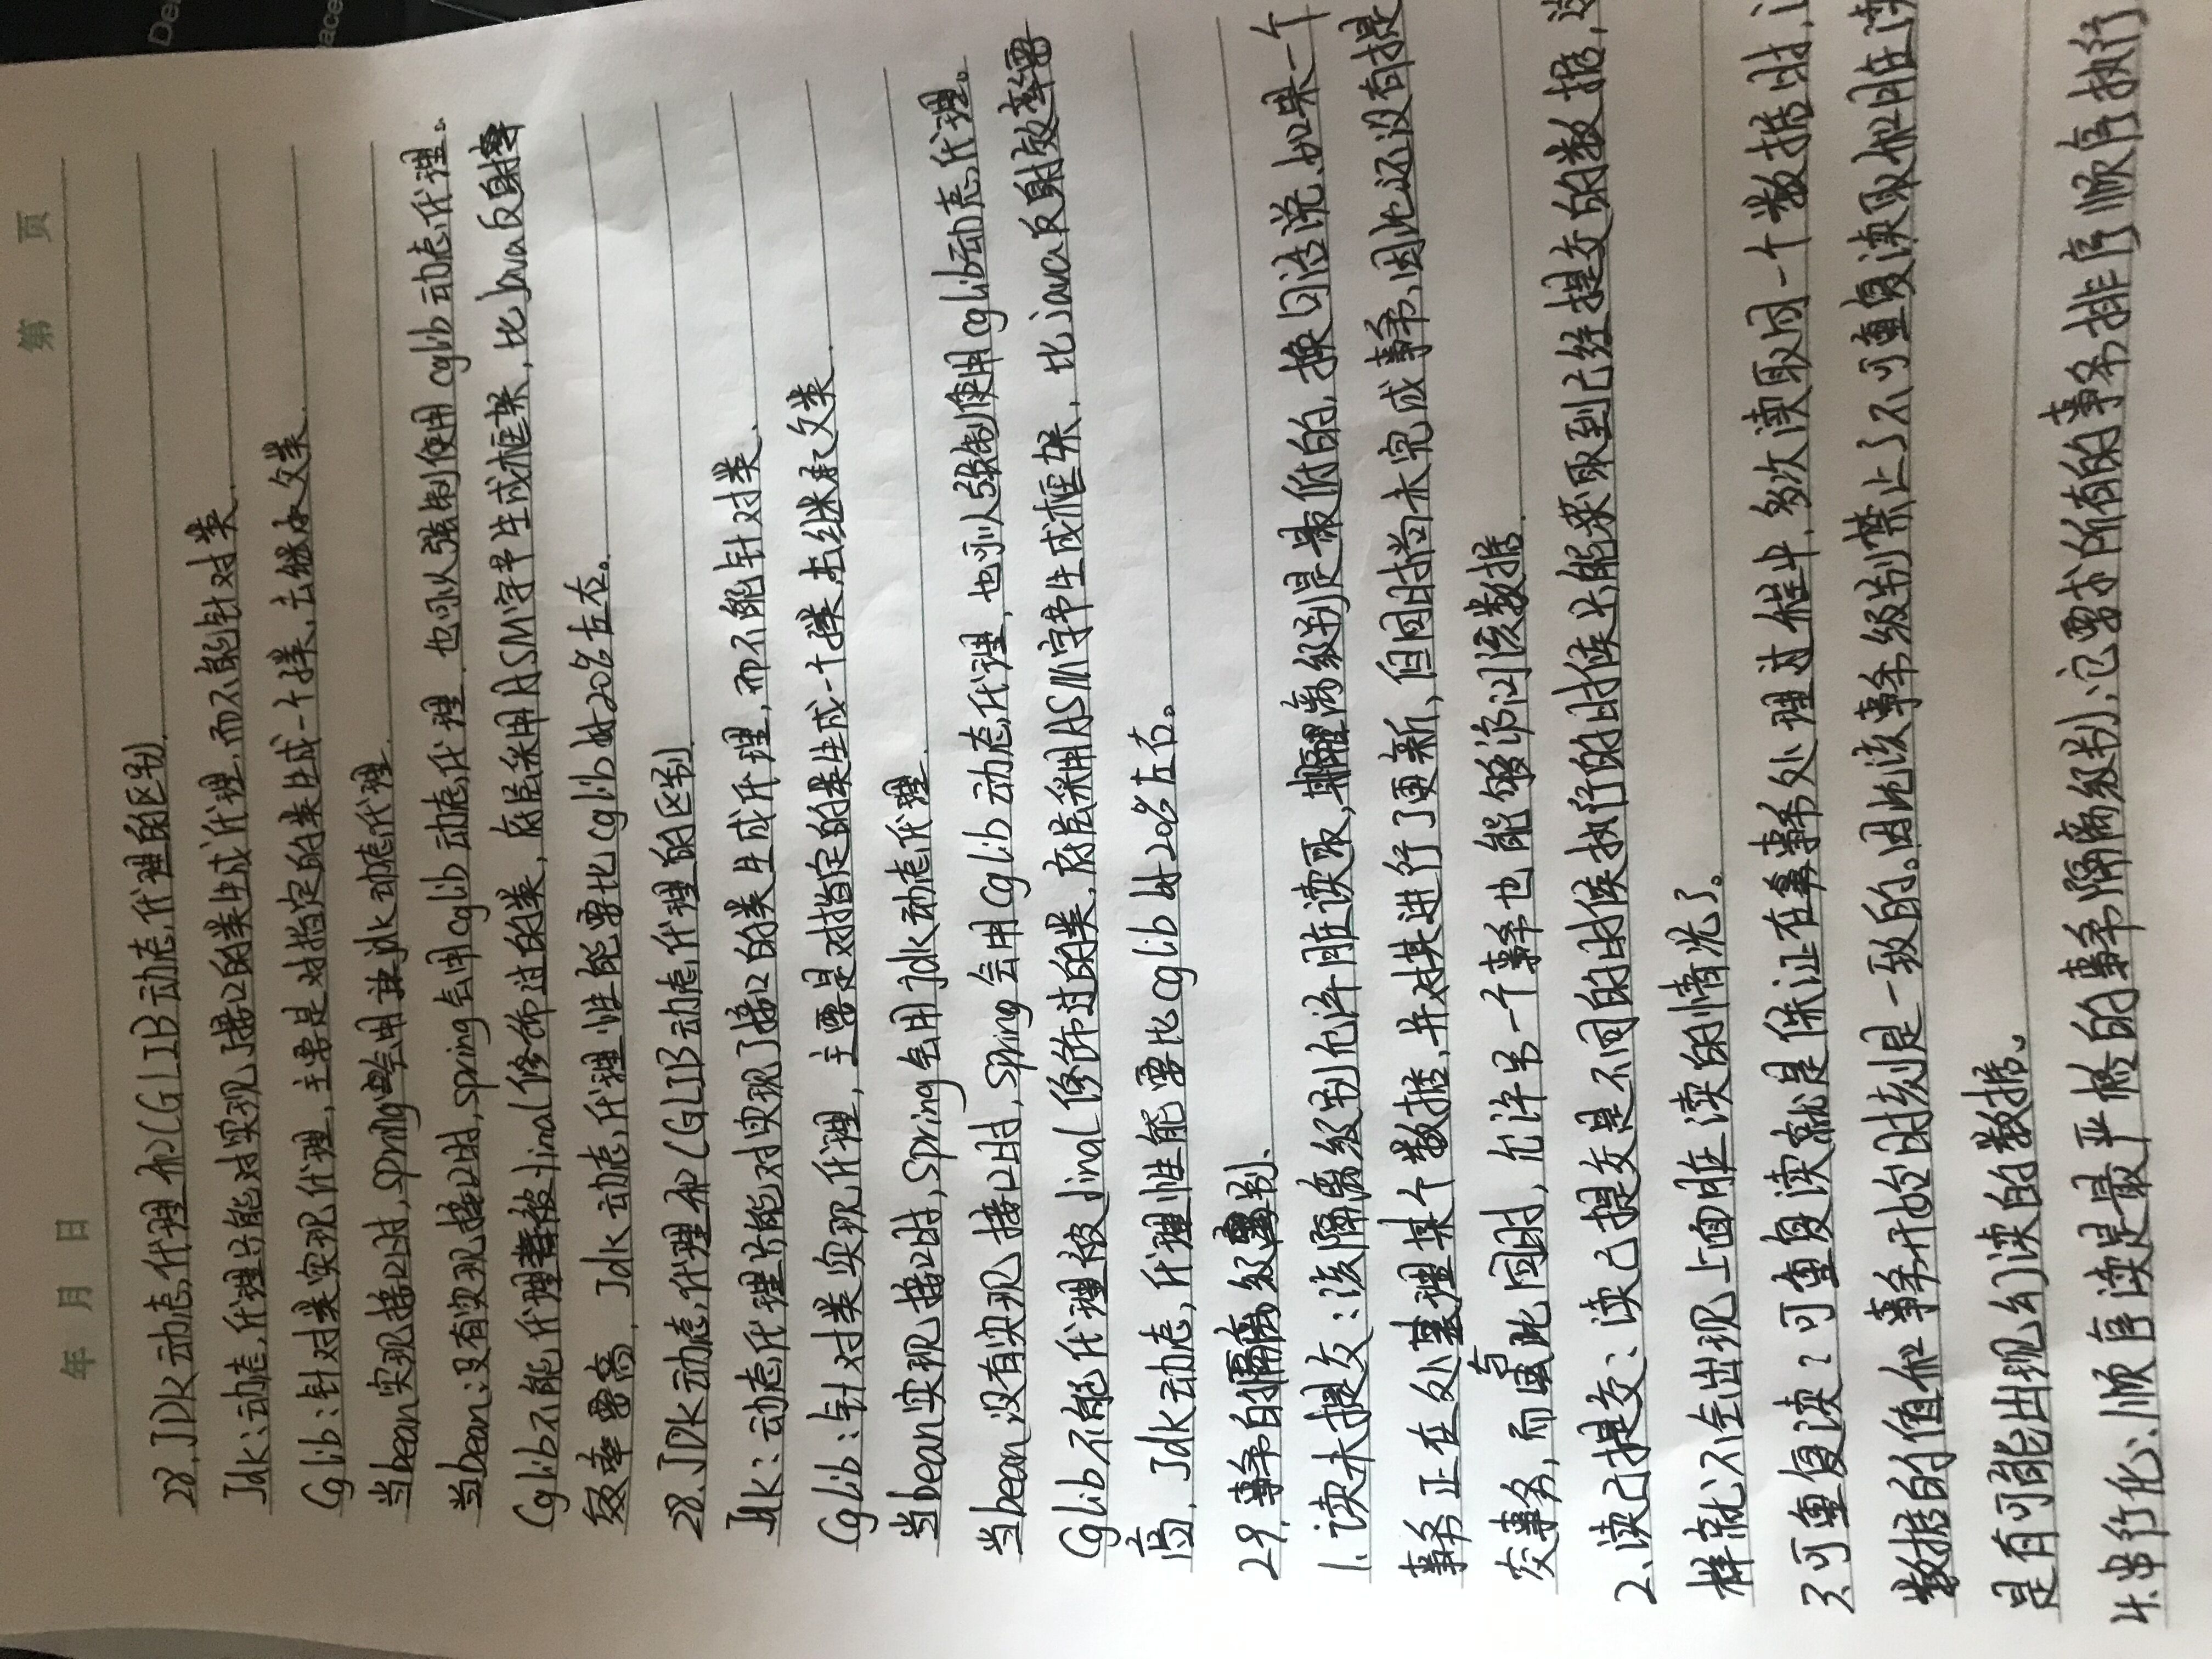 年 月 日 第 页
28. JDK动态代理和CGLIB动态代理的区别.
Jdk:动态代理只能对实现了接口的类生成代理,而不能针对类.
Cglib:针对类实现代理,主要是对指定的类生成一个子类,去继承父类.
当bean实现接口时,spring会用jdk动态代理.
当bean没有实现接口时,spring会用cglib动态代理.也可以强制使用cglib动态代理。
Cglib不能代理被final修饰过的类,底层采用ASM字节生成框架,比Java反射
效率要高,Jdk动态代理性能要比cglib好20%左右。
28.JDK动态代理和CGLIB动态代理的区别
Jdk:动态代理只能对实现了接口的类生成代理,而不能针对类.
Cglib:针对类实现代理,主要是对指定的类生成一个子类,去继承父类.
当bean实现接口时,spring会用jdk动态代理.
当bean没有实现接口时,spring会用cglib动态代理,也可以强制使用cglib动态代理。
Cglib不能代理被final修饰过的类,底层采用ASM字节生成框架,比java反射效率要
高,Jdk动态代理性能要比cglib好20%左右。
29.事务的隔离级别.
1.读未提交:该隔离级别允许脏读取,其隔离级别是最低的,换句话说,如果一个
事务正在处理某个数据,并对其进行了更新,但同时尚未完成事务,因此还没有提
交事务,而与此同时,允许另一个事务也能够访问该数据.
2、读已提交:读已提交是不同的时候执行的时候只能获取到已经提交的数据,这
样就不会出现上面脏读的情况了。
3.可重复读:可重复读就是保证在事务处理过程中,多次读取同一个数据时,
数据的值和事务开始时刻是一致的。因此该事务级别禁止了不可重复读取和脏读
是有可能出现幻读的数据。
4.串行化:顺序读是最严格的事务隔离级别,它要求所有的事务排序顺序执行